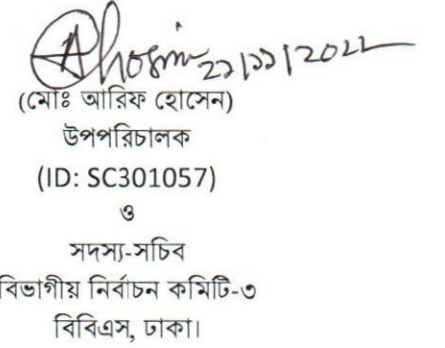 ২২/১১/২০২২
(মোঃ আরিফ হোসেন)
উপপরিচালক
(ID: SC301057)
ও
সদস্য-সচিব
বিভাগীয় নির্বাচন কমিটি-৩
বিবিএস, ঢাকা।